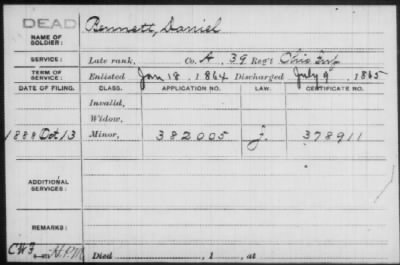 DEAD
NAME OF SOLDIER: Bennett, Daniel
SERVICE: Late rank, Co. A, 39 Reg't Ohio Inf
TERM OF SERVICE: Enlisted Jan 18, 1864 Discharged July 9, 1865
DATE OF FILING. CLASS. APPLICATION NO. LAW. CERTIFICATE NO.
Invalid,
Widow,
1888 Oct 13 Minor, 382005 J. 378911
ADDITIONAL SERVICES:
REMARKS:
Died , 1 , at